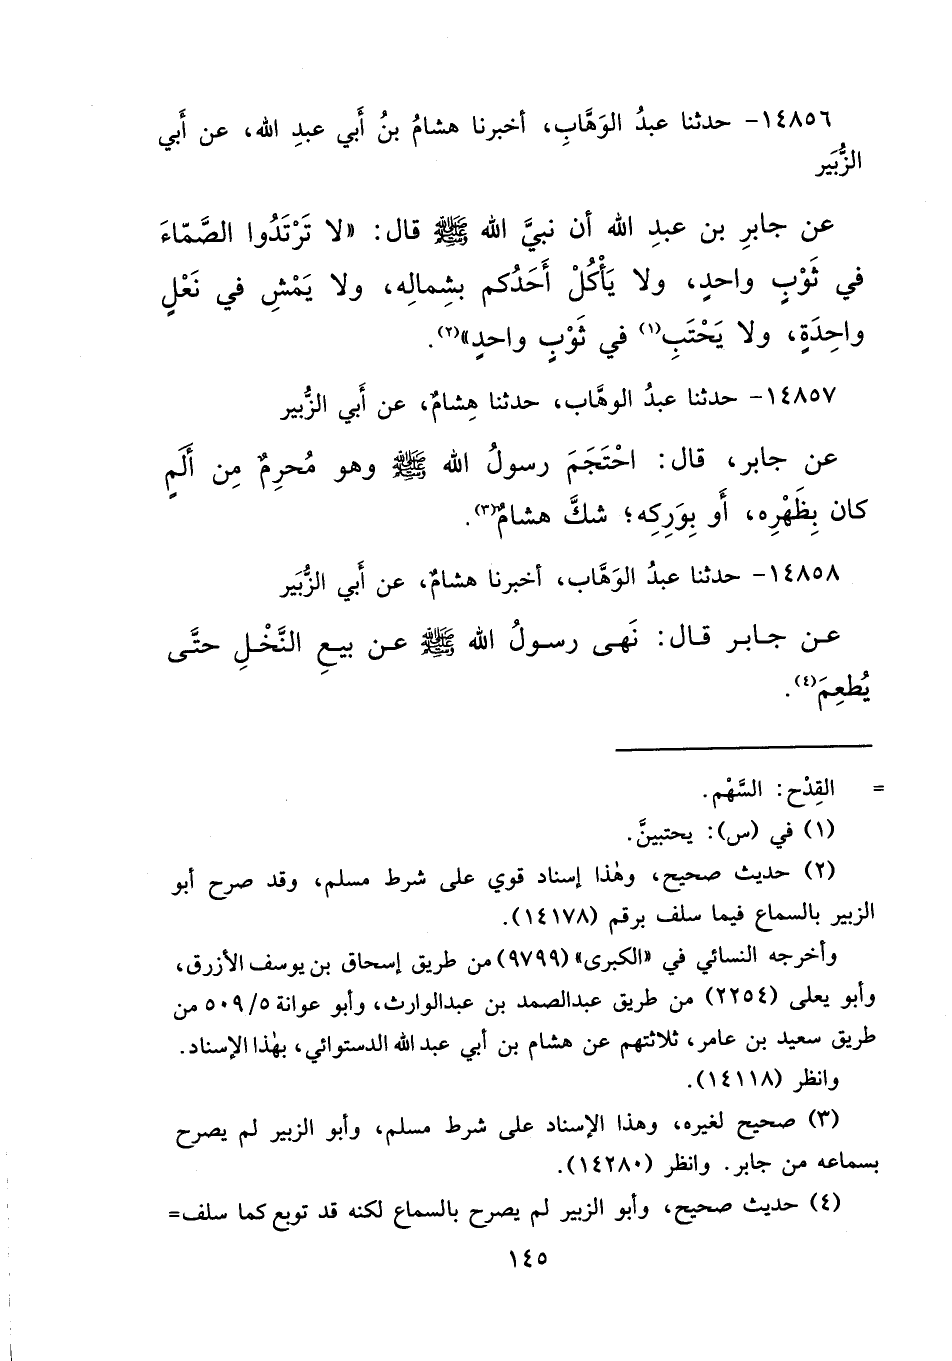 ١٤٨٥٦- حدثنا عبدُ الوَهَّابِ، أخبرنا هشامُ بنُ أَبي عبدِ الله، عن أَبي
الزُّبَير
عن جابرِ بن عبدِ الله أن نبيَّ الله ﷺ قال: «لا تَرْتَدُوا الصَّمّاءَ
في ثَوْبٍ واحدٍ، ولا يَأْكُلْ أَحَدُكم بشِمالِه، ولا يَمْشِ في نَعْلٍ
واحِدَةٍ، ولا يَحْتَبِ(١) في ثَوْبٍ واحدٍ»(٢).
١٤٨٥٧- حدثنا عبدُ الوهَّاب، حدثنا هِشامٌ، عن أَبي الزُّبير
عن جابر، قال: احْتَجَمَ رسولُ الله ﷺ وهو مُحرِمٌ مِن أَلَمٍ
كان بِظَهْرِه، أَو بِوَرِكِه؛ شكَّ هشامٌ(٣).
١٤٨٥٨- حدثنا عبدُ الوَهَّاب، أخبرنا هشامٌ، عن أَبي الزُّبَير
عن جابر قال: نَهى رسولُ الله ﷺ عن بيعِ النَّخْلِ حتَّى
يُطعِمَ(٤).
= القِدْح: السَّهْم.
(١) في (س): يحتبينَّ.
(٢) حديث صحيح، وهٰذا إسناد قوي على شرط مسلم، وقد صرح أبو
الزبير بالسماع فيما سلف برقم (١٤١٧٨).
وأخرجه النسائي في «الكبرى» (٩٧٩٩) من طريق إسحاق بن يوسف الأزرق،
وأبو يعلى (٢٢٥٤) من طريق عبدالصمد بن عبدالوارث، وأبو عوانة ٥٠٩/٥ من
طريق سعيد بن عامر، ثلاثتهم عن هشام بن أبي عبد الله الدستوائي، بهٰذا الإسناد.
وانظر (١٤١١٨).
(٣) صحيح لغيره، وهذا الإسناد على شرط مسلم، وأبو الزبير لم يصرح
بسماعه من جابر. وانظر (١٤٢٨٠).
(٤) حديث صحيح، وأبو الزبير لم يصرح بالسماع لكنه قد توبع كما سلف=
١٤٥